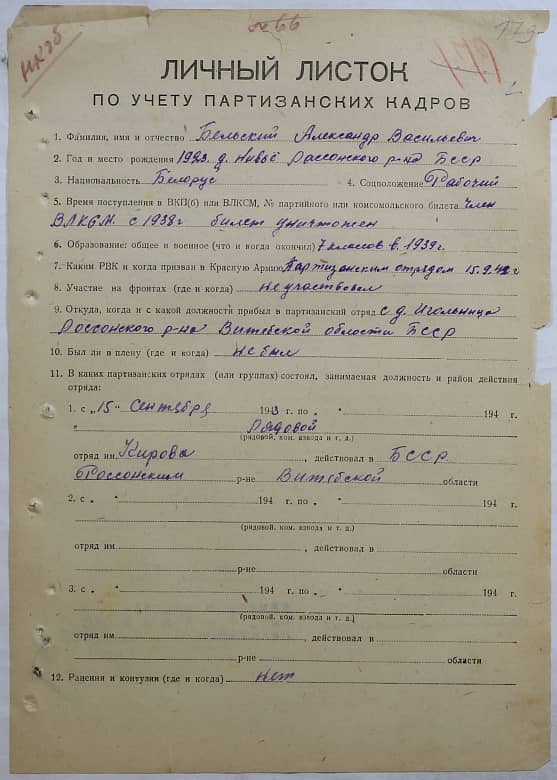 66
179
ЛИЧНЫЙ ЛИСТОК
ПО УЧЕТУ ПАРТИЗАНСКИХ КАДРОВ
1. Фамилия, имя и отчество Бельский Александр Васильевич
2. Год и место рождения 1923 д. Нивьё Россонского р-на БССР
3. Национальность Белорус 4. Соцположение Рабочий
5. Время поступления в ВКП(б) или ВЛКСМ, № партийного или комсомольского билета член
ВЛКСМ с 1938г билет уничтожен
6. Образование: общее и военное (что и когда окончил) 7 класов в 1939г.
7. Каким РВК и когда призван в Красную Армию Партизанским отрядом 15.9.42 г
8. Участие на фронтах (где и когда) не участвовал
9. Откуда, когда и с какой должности прибыл в партизанский отряд с д. Игольница
Россонского р-на Витебской области БССР
10. Был ли в плену (где и когда) не был
11. В каких партизанских отрядах (или группах) состоял, занимаемая должность и район действия
отряда:
1. с „15" Сентября 1943 г. по „ " 194 г.
" Рядовой
(рядовой, ком. взвода и т. д.)
отряд им. Кирова , действовал в БССР
Россонским р-не Витебской области
2. с „ " 194 г. по „ " 194 г.
(рядовой, ком. взвода и т. д.)
отряд им. , действовал в
р-не области
3. с „ " 194 г. по „ " 194 г.
(рядовой, ком. взвода и т. д.)
отряд им. , действовал в
р-не области
12. Ранения и контузии (где и когда) нет